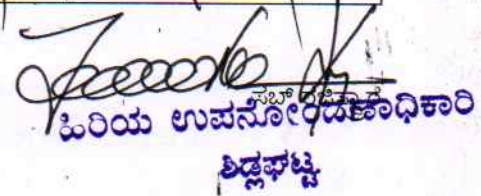 ಸಬ್ ರಿಜಿಸ್ಟ್ರಾರ್
ಹಿರಿಯ ಉಪನೋಂದಣಾಧಿಕಾರಿ
ಶಿಡ್ಲಘಟ್ಟ